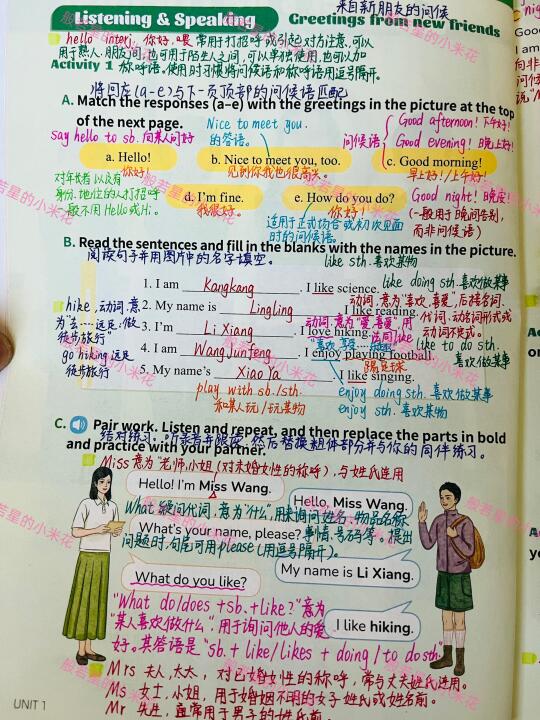 来自新朋友的问候
Listening & Speaking Greetings from new friends
hello interj. 你好,喂 常用于打招呼或引起对方注意,可以
用于熟人、朋友间,也可用于陌生人之间,可以单独使用,也可以加
Activity 1 称呼语。使用时习惯将问候语和称呼语用逗号隔开。
将回应(a-e)与下一页顶部的问候语匹配
A. Match the responses (a–e) with the greetings in the picture at the top
of the next page.
Nice to meet you.
的答语。
say hello to sb. 向某人问好
问候语
Good afternoon! 下午好!
Good evening! 晚上好!
a. Hello!
你好
b. Nice to meet you, too.
见到你我也很高兴。
c. Good morning!
早上好!/上午好!
对年长者以及有
身份、地位的人打招呼
一般不用Hello或Hi。
d. I'm fine.
我很好。
e. How do you do?
你好!
适用于正式场合或初次见面
时的问候语。
Good night! 晚安!
(一般用于晚间告别,
而非问候语)
B. Read the sentences and fill in the blanks with the names in the picture.
阅读句子并用图片中的名字填空。
like sth. 喜欢某物
1. I am Kangkang. I like science.
like doing sth. 喜欢做某事
动词,意为"喜欢,喜爱",后接名词、
代词、动名词形式或
动词不定式。
2. My name is Lingling. I like reading.
hike, 动词,意
为"去……远足;做
徒步旅行"
go hiking 远足
徒步旅行
3. I'm Li Xiang. I love hiking.
like to do sth.
喜欢做某事
4. I am Wang Junfeng. I enjoy playing football.
踢足球
5. My name's Xiao Ya. I like singing.
enjoy doing sth. 喜欢做某事
enjoy sth. 喜欢某物
play with sb./sth.
和某人玩/玩某物
C. Pair work. Listen and repeat, and then replace the parts in bold
and practice with your partner.
结对练习。听录音并跟读,然后替换粗体部分并与你的同伴练习。
Miss 意为"老师,小姐(对未婚女性的称呼),与姓氏连用
Hello! I'm Miss Wang.
Hello, Miss Wang.
What 疑问代词,意为"什么",用来询问姓名、物品名称、
What's your name, please?
事情、号码等。提出
问题时,句尾可用please(用逗号隔开)。
My name is Li Xiang.
What do you like?
I like hiking.
"What do/does + sb. + like?" 意为
"某人喜欢做什么",用于询问他人的爱
好。其答语是"sb. + like/likes + doing/to do sth."
Mrs 夫人,太太,对已婚女性的称呼,常与丈夫姓氏连用。
Ms 女士,小姐,用于婚姻不明的女子姓氏或姓名前。
UNIT 1
Mr 先生,通常用于男子的姓氏前。
般若星的小米花